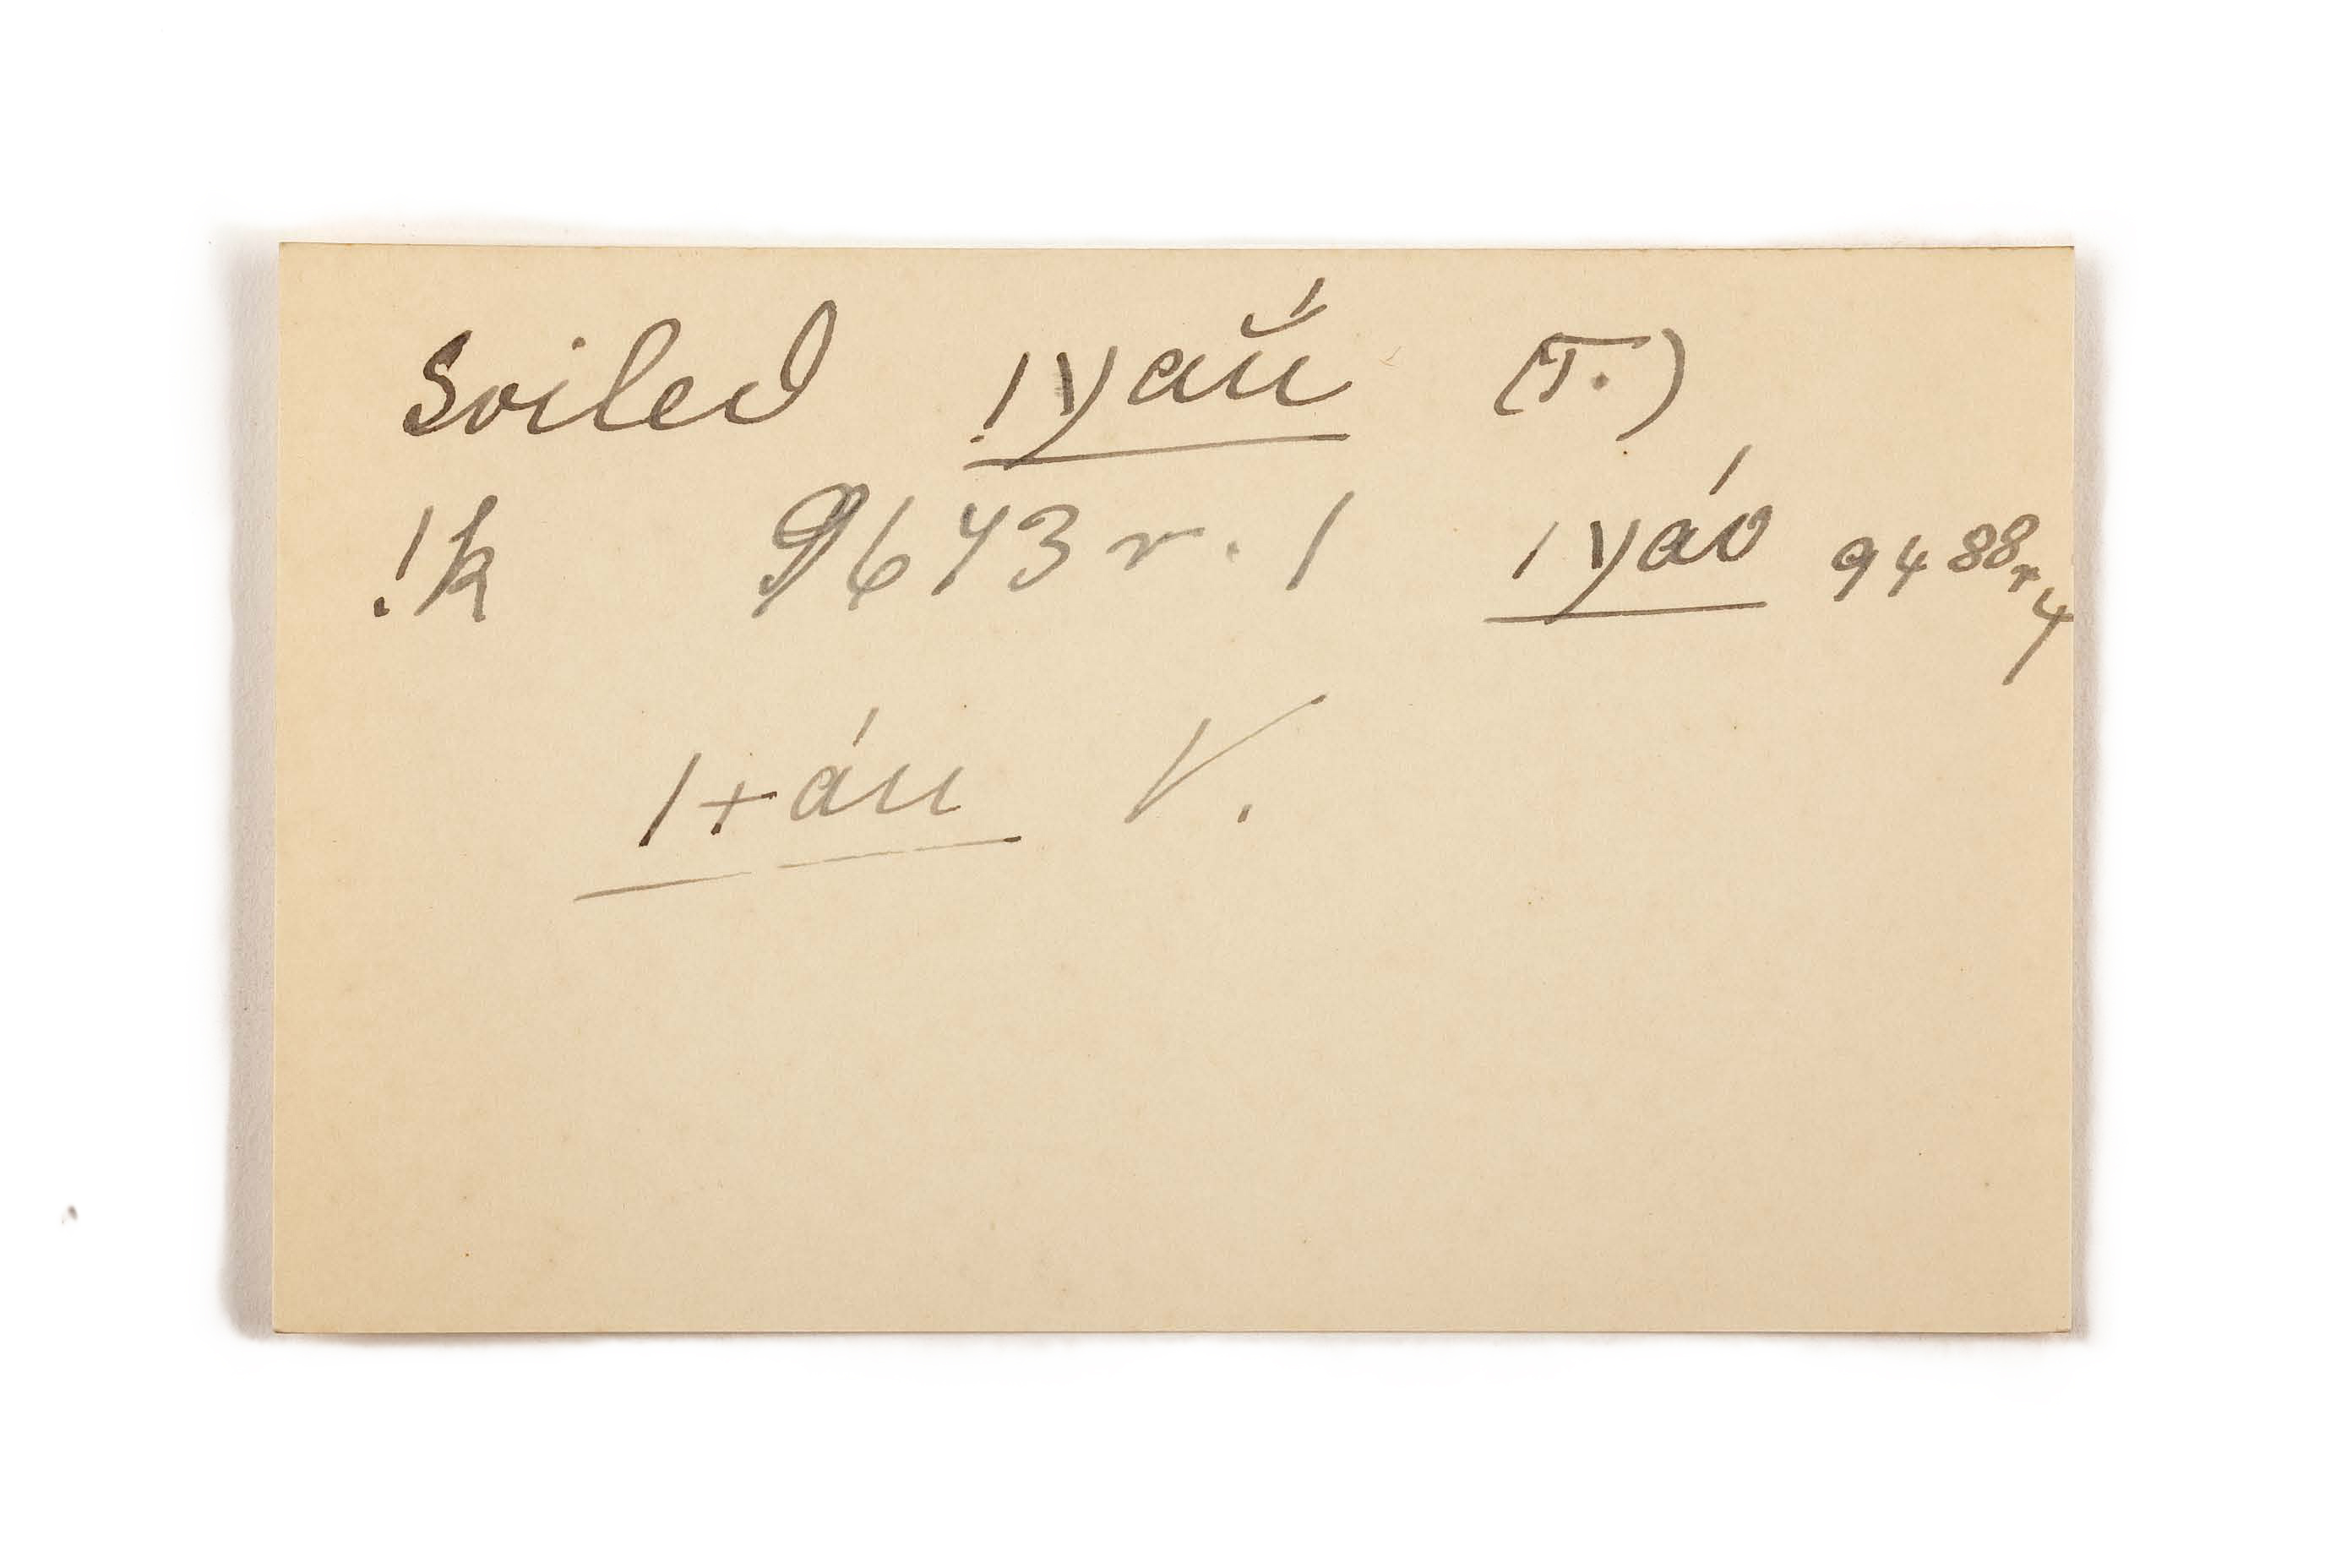 Soiled !yaŭ́ (T.)
!k 9673 r. 1 |yáo 9488 r 4
|+áu V.